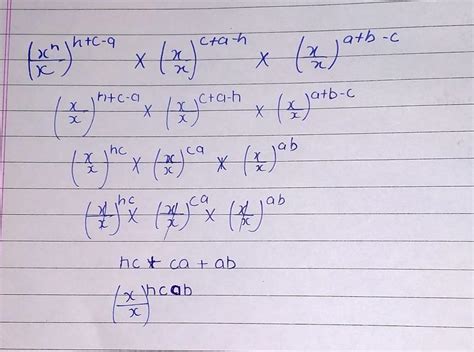 (xⁿ/x)^h+c-a × (x/x)^c+a-h × (x/x)^a+b-c
(x/x)^h+c-a × (x/x)^c+a-h × (x/x)^a+b-c
(x/x)^hc × (x/x)^ca × (x/x)^ab
(x/x)^hc × (x/x)^ca × (x/x)^ab
hc + ca + ab
(x/x)^hcab